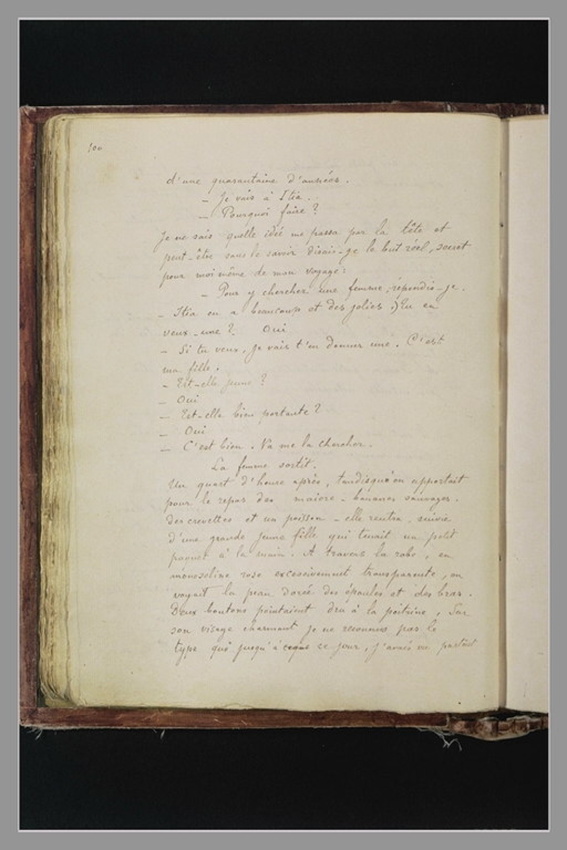 100
d'une quarantaine d'années.
— Je vais à Itia.
— Pourquoi faire?
Je ne sais quelle idée me passa par la tête et
peut-être sans le savoir disais-je le but réel, secret
pour moi même de mon voyage:
— Pour y chercher une femme, répondis-je.
— Itia en a beaucoup et des jolies. Tu en
veux-une? Oui
— Si tu veux, je vais t'en donner une. C'est
ma fille.
— Est-elle jeune?
— Oui
— Est-elle bien portante?
— Oui
— C'est bien. Va me la chercher.
La femme sortit.
Un quart d'heure après, tandisqu'on apportait
pour le repas des maiore - bananes sauvages.
des crevettes et un poisson - elle rentra, suivie
d'une grande jeune fille qui tenait un petit
paquet à la main. A travers la robe, en
mousseline rose excessivement transparente, on
voyait la peau dorée des épaules et des bras.
Deux boutons pointaient dru à la poitrine, Sur
son visage charmant je ne reconnus pas le
type que jusqu'a ce jour, j'avais vu partout